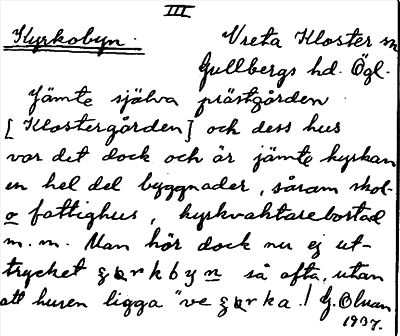 III
Kyrkobyn.
Vreta Kloster sn
Gullbergs hd. Ögl.
Jämte själva prästgården
[Klostergården] och dess hus
var det dock och är jämte kyrkan
en hel del byggnader, såsom skol-
o fattighus, kyrkvaktarebostad
m.m. Man hör dock nu ej ut-
trycket så ofta, utan
att husen ligga "ve
1937.